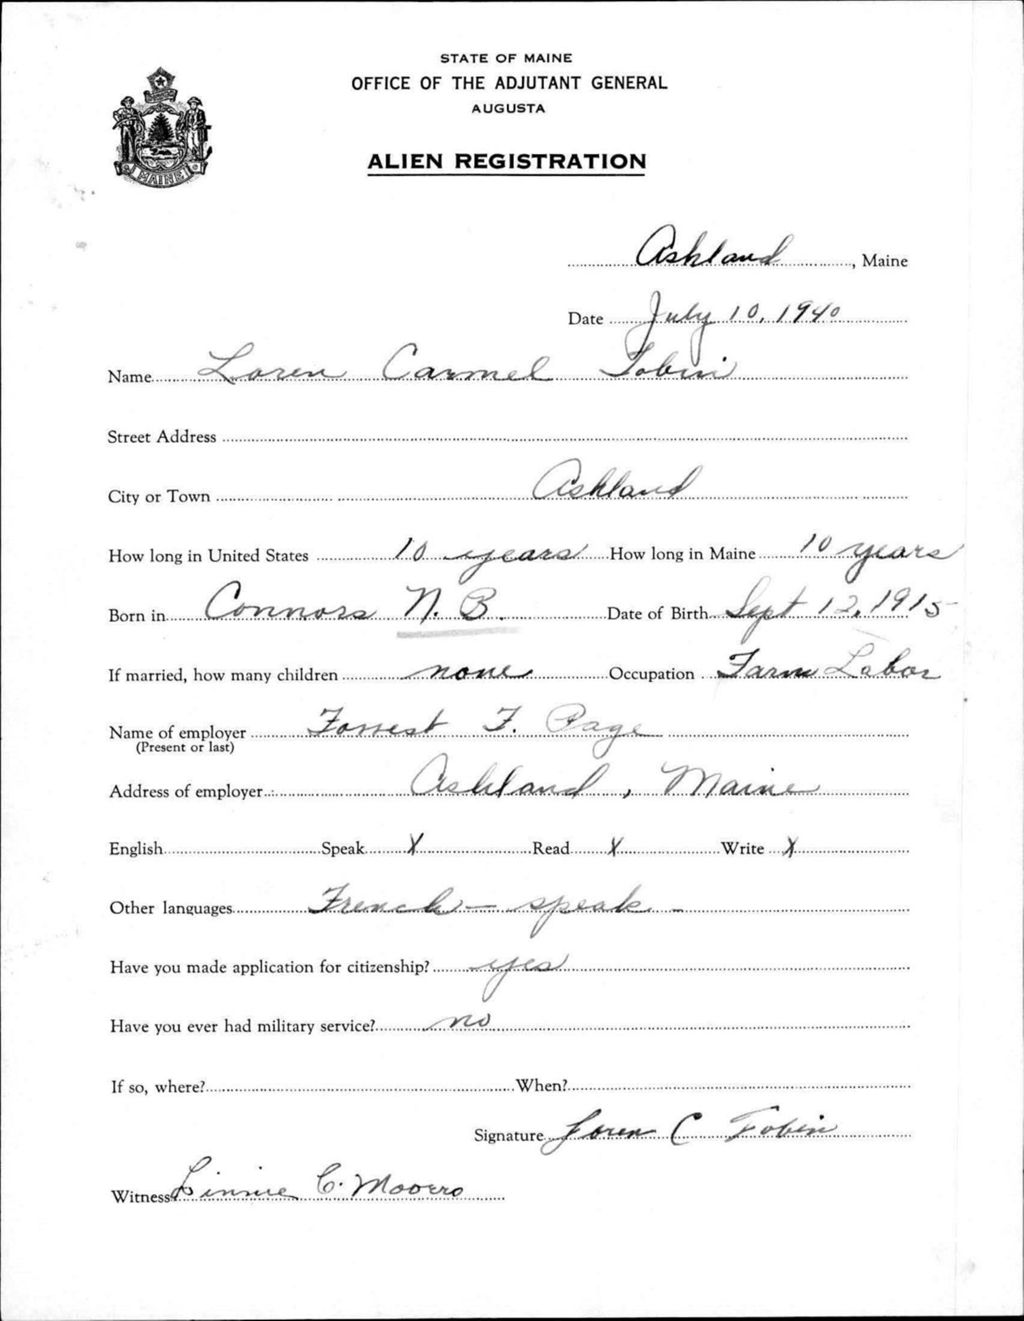 STATE OF MAINE
OFFICE OF THE ADJUTANT GENERAL
AUGUSTA
ALIEN REGISTRATION
MAINE
Ashland, Maine
Date July 10, 1940
Name Loren Carmel Tobin
Street Address
City or Town Ashland
How long in United States 10 years How long in Maine 10 years
Born in Connors N. B. Date of Birth Sept 12, 1915
If married, how many children none Occupation Farm Labor
Name of employer Forrest F. Page
(Present or last)
Address of employer Ashland, Maine
English Speak X Read X Write X
Other languages French - speak -
Have you made application for citizenship? yes
Have you ever had military service? no
If so, where? When?
Signature Loren C Tobin
Witness Linnie C.